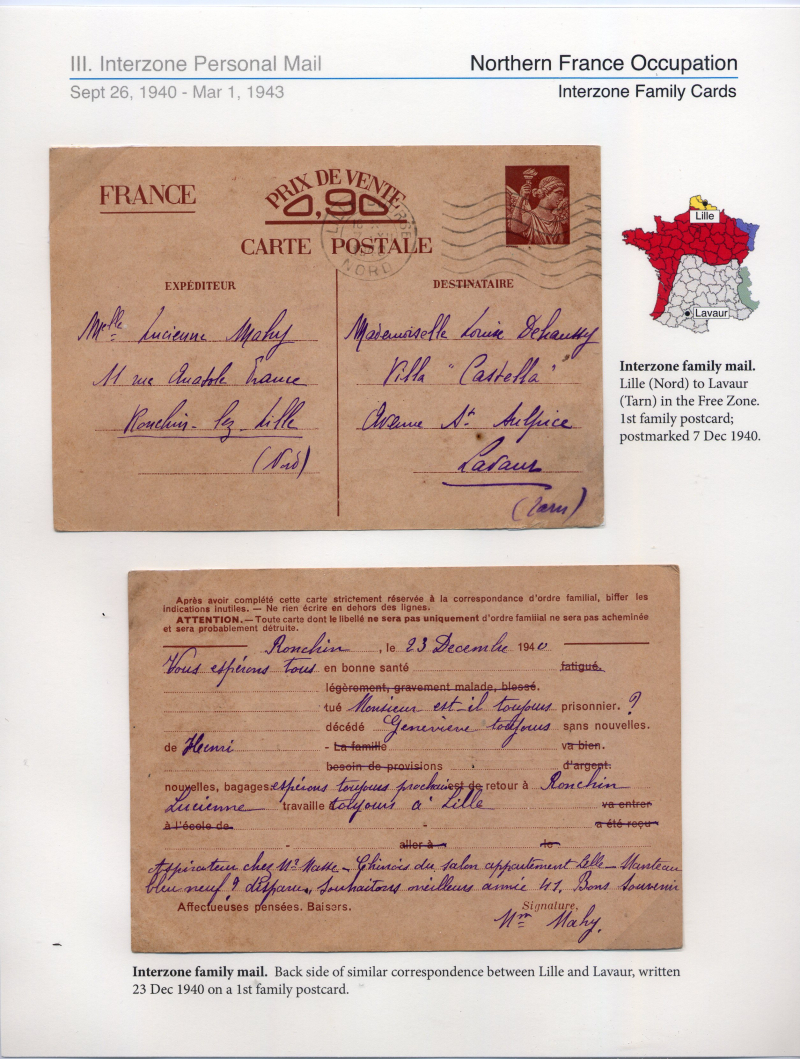 III. Interzone Personal Mail
Northern France Occupation
Sept 26, 1940 - Mar 1, 1943
Interzone Family Cards
FRANCE
PRIX DE VENTE
0,90
CARTE POSTALE
NORD
EXPÉDITEUR
DESTINATAIRE
Melle Lucienne Mahy
11 rue Anatole France
Ronchin-lez-Lille
(Nord)
Mademoiselle Louise Dehaussy
Villa "Castella"
Avenue St Sulpice
Lavaur
(Tarn)
Lille
Lavaur
Interzone family mail.
Lille (Nord) to Lavaur
(Tarn) in the Free Zone.
1st family postcard;
postmarked 7 Dec 1940.
Après avoir complété cette carte strictement réservée à la correspondance d'ordre familial, biffer les
indications inutiles. — Ne rien écrire en dehors des lignes.
ATTENTION. — Toute carte dont le libellé ne sera pas uniquement d'ordre familial ne sera pas acheminée
et sera probablement détruite.
Ronchin, le 23 Decembre 1940
Vous espérons tous en bonne santé fatigué.
légèrement, gravement malade, blessé.
tué Monsieur est-il toujours prisonnier. ?
décédé Geneviève toujours sans nouvelles.
de Henri - La famille va bien.
besoin de provisions d'argent.
nouvelles, bagages espérons toujours prochain est de retour à Ronchin
Lucienne travaille toujours à Lille va entrer
à l'école de - a été reçu
- aller à le
Aspirateur chez Mr Masse - Chinois du salon appartement Lille - Manteau
bleu neuf ? disparu, souhaitons meilleurs année 41. Bons souvenir
Affectueuses pensées. Baisers.
Signature,
Mm Mahy.
Interzone family mail. Back side of similar correspondence between Lille and Lavaur, written
23 Dec 1940 on a 1st family postcard.